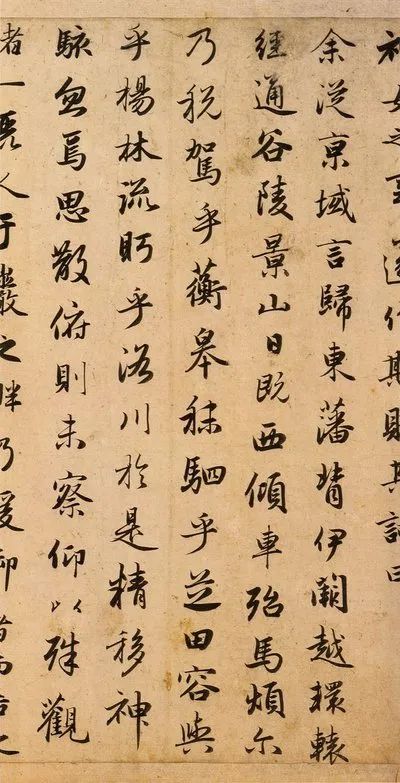 神女之事遂作斯賦其詞曰
余從京域言歸東藩背伊闕越轘轅
經通谷陵景山日既西傾車殆馬煩尔
乃税駕乎蘅皋秣駟乎芝田容與
乎楊林流眄乎洛川於是精移神
駭忽焉思散俯則未察仰以殊觀
睹一麗人于巖之畔乃援御者而告之